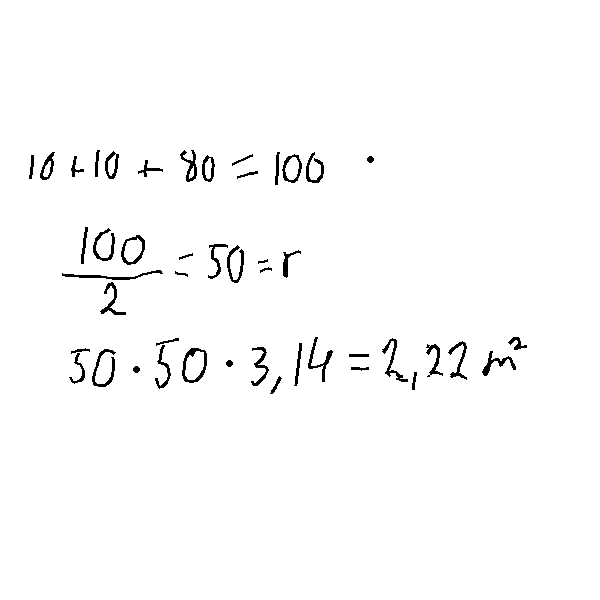 10+10+80=100 ·
100/2=50=r
50·50·3,14=2,22 m²